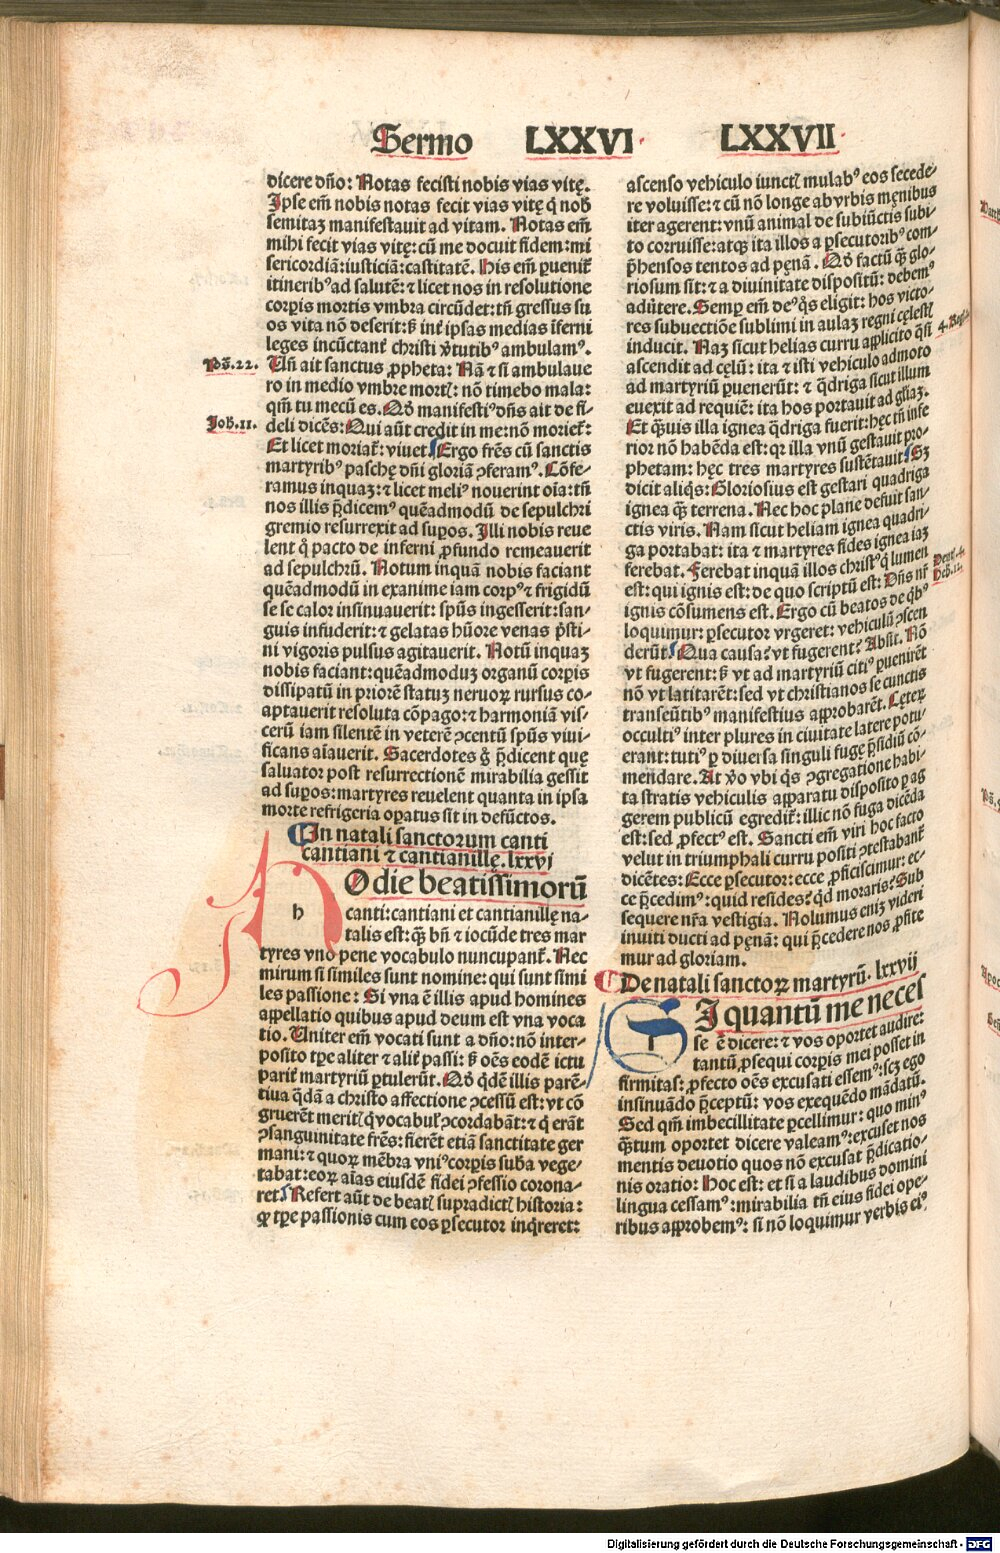 Sermo LXXVI LXXVII
dicere dño: Notas fecisti nobis vias vitę.
Ipse em̄ nobis notas fecit vias vitę q̇ nob̄
semitaʒ manifestauit ad vitam. Notas em̄
mihi fecit vias vitę: cū me docuit fidem: mi
sericordiā: iusticiā: castitatē. His em̄ ꝑuenit̄
itineribꝰ ad salutē: ⁊ licet nos in resolutione
corꝑis mortis vmbra circūdet: tñ gressus su
os vita nō deserit: ß int̄ ipsas medias īferni
leges incūctant̄ christi v̄tutibꝰ ambulamꝰ.
Ps̄.22. Uñ ait sanctus ꝓpheta: Nā ⁊ si ambulaue
ro in medio vmbre mortꝭ: nō timebo mala:
qm̄ tu mecū es. Qḋ manifestiꝰ dñs ait de fi⸗
Joh̄.11. deli dicēs: Qui aūt credit in me: nō moriet̄:
Et licet moriat̄: viuet Ergo frēs cū sanctis
martyribꝰ paschę dñi gloriā ꝯferamꝰ. Cōfe⸗
ramus inquaʒ: ⁊ licet meliꝰ nouerint oīa: tñ
nos illis p̄dicemꝰ quēadmodū de sepulchri
gremio resurrexit ad suꝑos. Illi nobis reue
lent q̊ pacto de inferni ꝓfundo remeauerit
ad sepulchrū. Notum inquā nobis faciant
quēadmodū in exanime iam corpꝰ ⁊ frigidū
se se calor insinuauerit: spūs ingesserit: san⸗
guis infuderit: ⁊ gelatas hūore venas p̄sti⸗
ni vigoris pulsus agitauerit. Notū inquaʒ
nobis faciant: quēadmoduʒ organū corꝑis
dissipatū in priorē statuʒ neruoꝝ rursus co⸗
aptauerit resoluta cōpago: ⁊ harmoniā vis⸗
cerū iam silentē in veterē ꝯcentū spūs viui⸗
ficans aīauerit. Sacerdotes ġ p̄dicent quę
saluator post resurrectionē mirabilia gessit
ad suꝑos: martyres reuelent quanta in ipsa
morte refrigeria oꝑatus sit in defūctos.
In natali sanctorum canti
cantiani ⁊ cantianillę. lxxvi
h Odie beatissimorū
canti: cantiani et cantianillę na⸗
talis est: q̄ꝫ bñ ⁊ iocūde tres mar
tyres vno pene vocabulo nuncupant̄. Nec
mirum si similes sunt nomine: qui sunt simi
les passione: Si vna ē illis apud homines
appellatio quibus apud deum est vna voca
tio. Uniter em̄ vocati sunt a dño: nō inter⸗
posito tꝑe aliter ⁊ alit̄ passi: ß oēs eodē ictu
parit̄ martyriū ꝑtulerūt. Qḋ q̇dē illis parē⸗
tiua q̇dā a christo affectione ꝯcessū est: vt cō
gruerēt meritꝭ q̇ vocabulꝭ ꝯcordabāt: ⁊ q̇ erāt
ꝯsanguinitate frēs: fierēt etiā sanctitate ger
mani: ⁊ quoꝝ mēbra vniꝰ corꝑis suba vege⸗
tabat: eoꝝ aīas eiusdē fidei ꝯfessio corona⸗
ret Refert aūt de beatꝭ supradictꝭ historia:
ꝙ tꝑe passionis cum eos ꝑsecutor inq̇reret:
ascenso vehiculo iunctꝭ mulabꝰ eos secede⸗
re voluisse: ⁊ cū nō longe ab vrbis męnibus
iter agerent: vnū animal de subiūctis subi⸗
to corruisse: atqꝫ ita illos a ꝑsecutoribꝰ com⸗
p̄hensos tentos ad pęnā. Qḋ factū q̄ꝫ glo⸗
riosum sit: ⁊ a diuinitate dispositū: debemꝰ
adutere. Semꝑ em̄ deꝰ q̊s eligit: hos victo⸗
res subuectiōe sublimi in aulaʒ regni cęlestꝭ
inducit. Naʒ sicut helias curru applicito q̄si 4. Reg̃.2.
ascendit ad cęlū: ita ⁊ isti vehiculo admoto
ad martyriū ꝑuenerūt: ⁊ q̇driga sicut illum
euexit ad requiē: ita hos portauit ad gl̄iaʒ.
Et q̄ꝫuis illa ignea q̇driga fuerit: hęc tñ infe
rior nō habēda est: qꝛ illa vnū gestauit pro⸗
phetam: hęc tres martyres sustētauit Sʒ
dicit aliq̇s: Gloriosius est gestari quadriga
ignea q̄ꝫ terrena. Nec hoc plane defuit san⸗
ctis viris. Nam sicut heliam ignea quadri⸗
ga portabat: ita ⁊ martyres fides ignea iaʒ
ferebat. Ferebat inquā illos christꝰ q̇ lumen Deut̄.4.
est: qui ignis est: de quo scriptū est: Dñs nr̄ Heb̄.12.
ignis cōsumens est. Ergo cū beatos de q̇bꝰ
loquimur: ꝑsecutor vrgeret: vehiculū ꝯscen
derūt Qua causa? vt fugerent? Absit. Nō
vt fugerent: ß vt ad martyriū citiꝰ ꝑuenirēt
nō vt latitarēt: sed vt christianos se cunctis
transeūtibꝰ manifestius approbarēt. Ceteꝝ
occultiꝰ inter plures in ciuitate latere potu⸗
erant: tutiꝰ ꝑ diuersa singuli fugę p̄sidiū cō⸗
mendare. At v̄o vbi q̇s ꝯgregatione habi⸗
ta stratis vehiculis apparatu disposito ꝑ ag
gerem publicū egredit̄: illic nō fuga dicēda
est: sed ꝓfectꝰ est. Sancti em̄ viri hoc facto
velut in triumphali curru positi ꝯtestabant̄
dicētes: Ecce ꝑsecutor: ecce ꝓficiscimur: ec⸗
ce p̄cedimꝰ: quid resides? q̇d moraris? Sub
sequere nr̄a vestigia. Nolumus eniʒ videri
inuiti ducti ad pęnā: qui p̄cedere nos ꝓfite
mur ad gloriam.
De natali sanctoꝝ martyrū. lxxvij
S I quantū me neces
se ē dicere: ⁊ vos oportet audire:
tantū ꝓsequi corꝑis mei posset in
firmitas: ꝓfecto oēs excusati essemꝰ: scʒ ego
insinuādo p̄ceptū: vos exequēdo mādatū.
Sed qm̄ imbecillitate ꝑcellimur: quo minꝰ
q̄ꝫtum oportet dicere valeamꝰ: excuset nos
mentis deuotio quos nō excusat p̄dicatio⸗
nis oratio: Hoc est: et si a laudibus domini
lingua cessamꝰ: mirabilia tñ eius fidei ope⸗
ribus approbemꝰ: si nō loquimur verbis eiꝰ
Digitalisierung gefördert durch die Deutsche Forschungsgemeinschaft - DFG